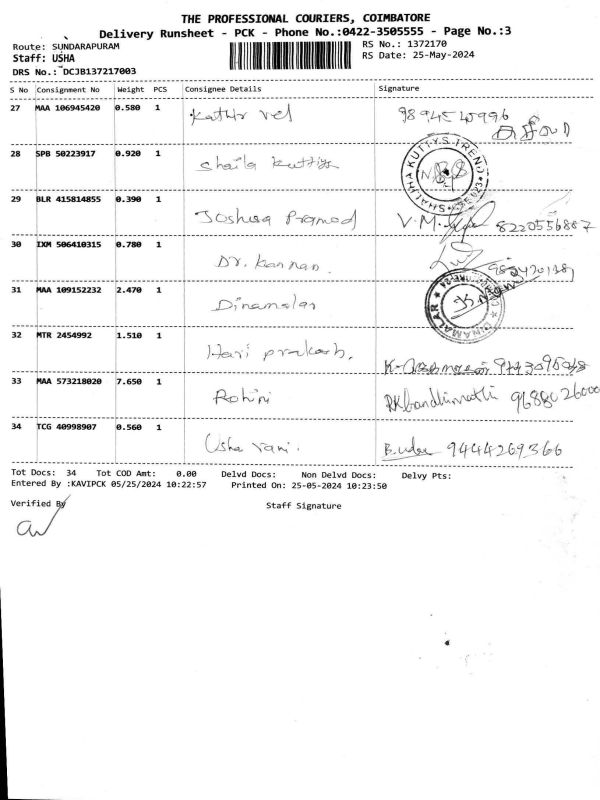 THE PROFESSIONAL COURIERS, COIMBATORE
Delivery Runsheet - PCK - Phone No.:0422-3505555 - Page No.:3
Route: SUNDARAPURAM
RS No.: 1372170
Staff: USHA
RS Date: 25-May-2024
DRS No.: DCJB137217003
S No Consignment No Weight PCS Consignee Details Signature
27 MAA 106945420 0.580 1 Kathir vel
28 SPB 50223917 0.920 1 Shaila Kuttiys
SHALIHA KUTTYS TREND
29 BLR 415814855 0.390 1 Joshua Pramod V.M. 8220556887
30 IXM 506410315 0.780 1 Dr. Kannan.
31 MAA 109152232 2.470 1 Dinamalar
DINAMALAR
32 MTR 2454992 1.510 1 Hari prakash.
33 MAA 573218020 7.650 1 Rohini 9688026000
34 TCG 40998907 0.560 1 Usha rani. 9444269366
Tot Docs: 34 Tot COD Amt: 0.00 Delvd Docs: Non Delvd Docs: Delvy Pts:
Entered By :KAVIPCK 05/25/2024 10:22:57 Printed On: 25-05-2024 10:23:50
Verified By Staff Signature